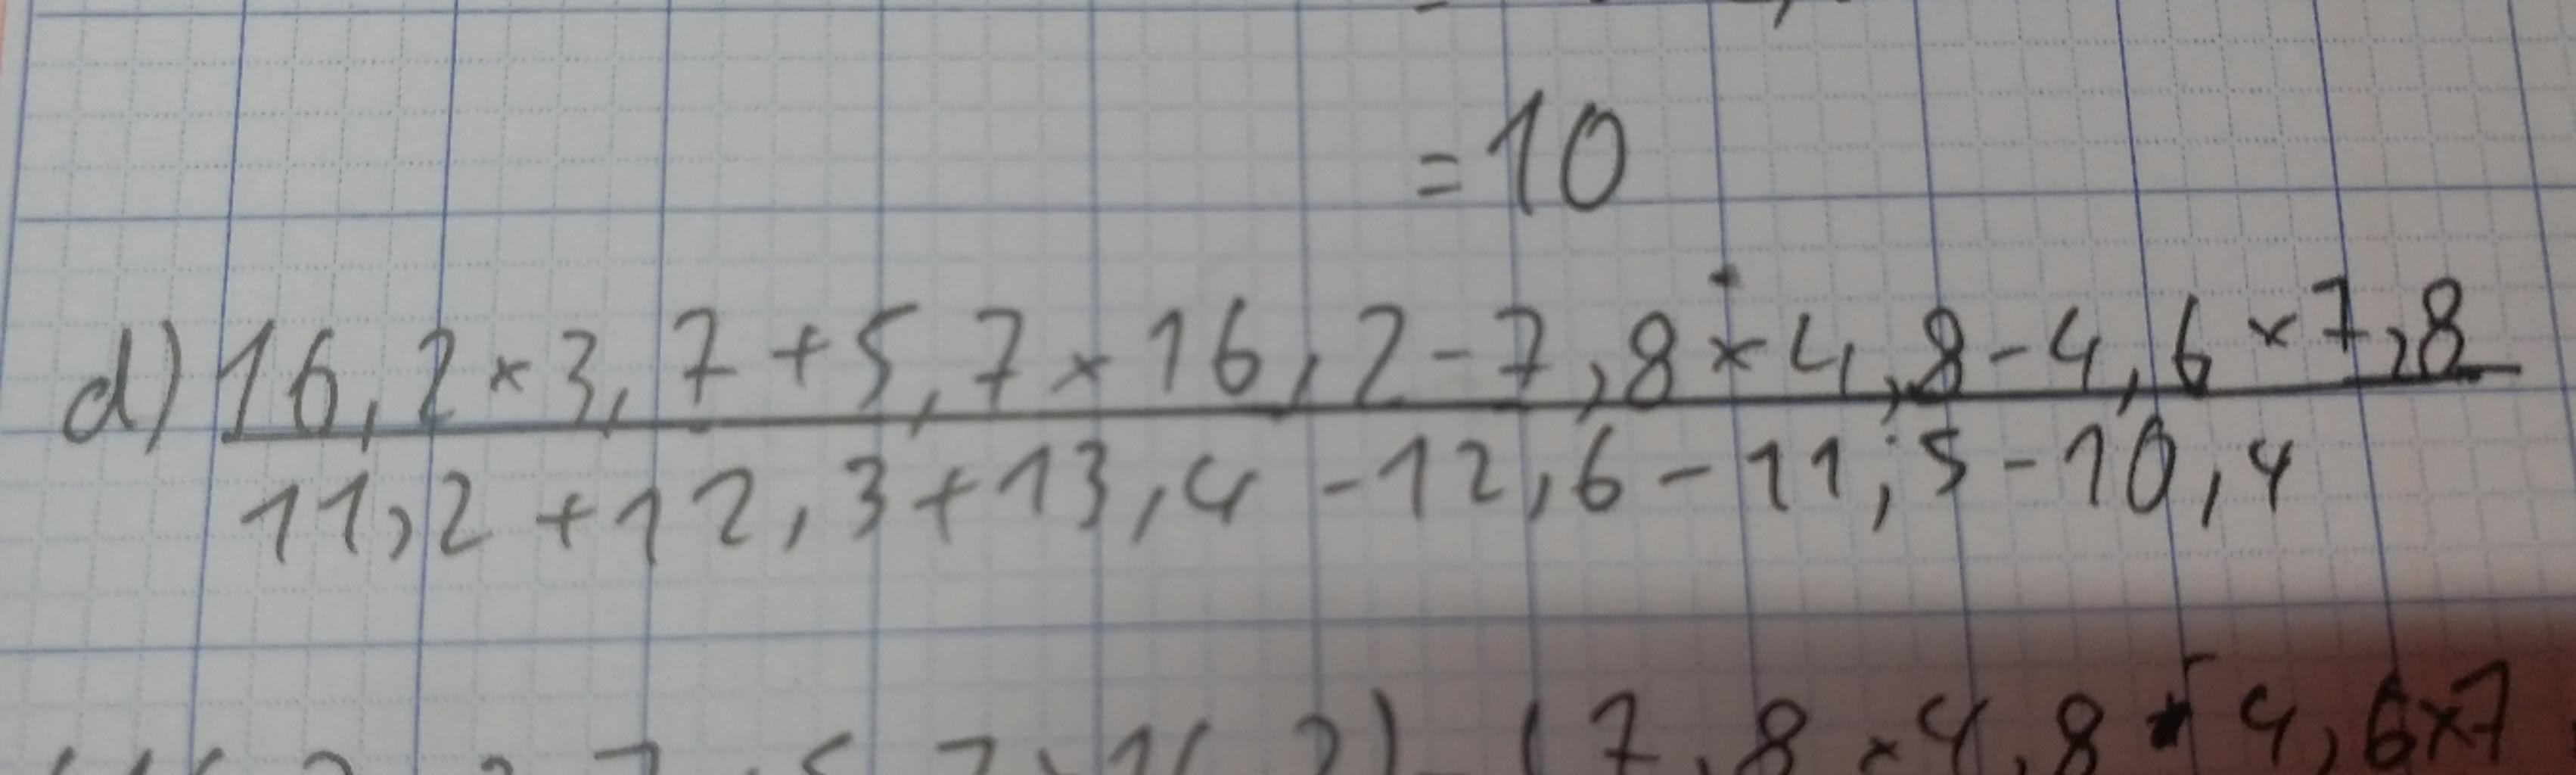 = 10
d) 16,2 × 3,7 + 5,7 × 16,2 - 7,8 × 4,8 - 4,6 × 7,8
11,2 + 12,3 + 13,4 - 12,6 - 11,5 - 10,4
(7,8 × 4,8 4,6 × 7